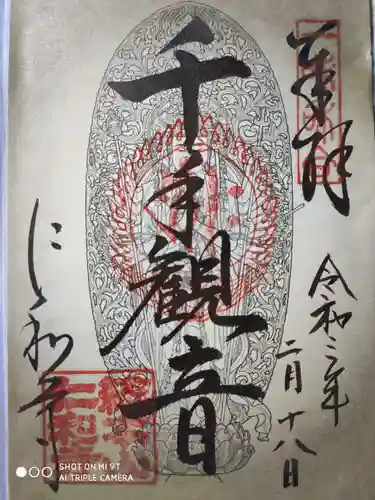 奉拝
令和二年
二月十八日
千手観音
仁和寺
総本山
仁和寺
SHOT ON MI 9T
AI TRIPLE CAMERA